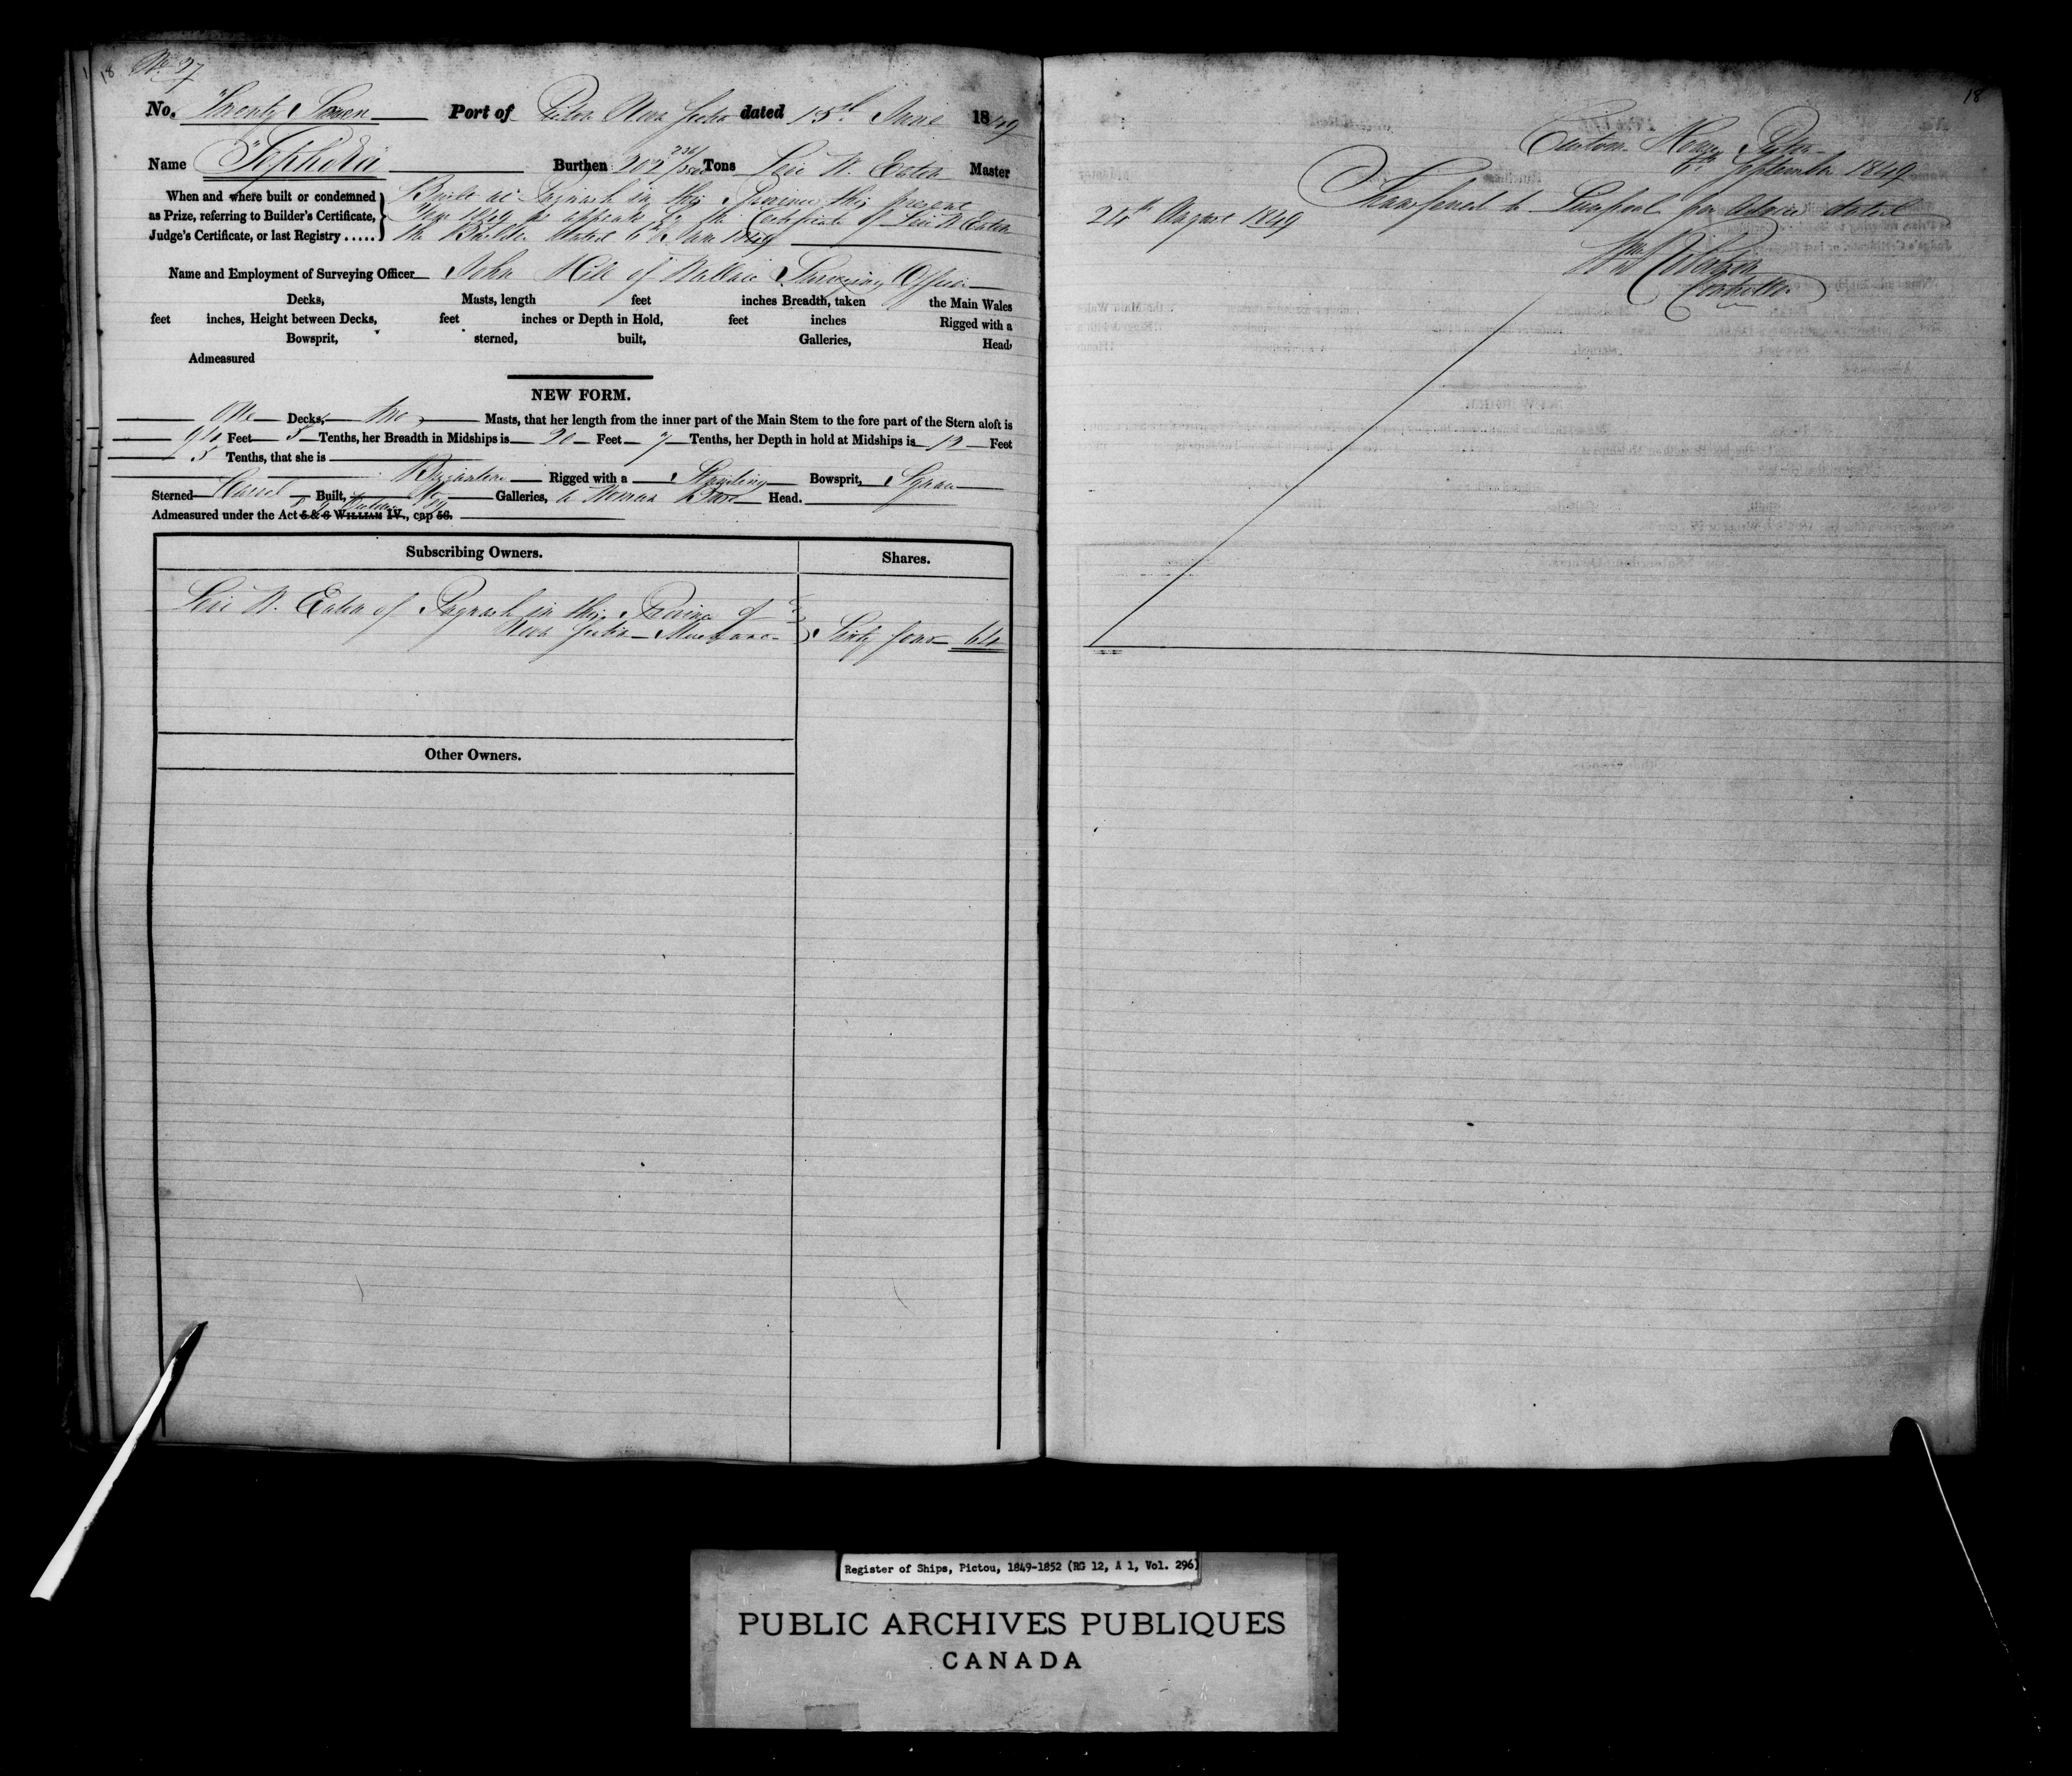 18 No 27
No. Twenty Seven Port of Pictou Nova Scotia dated 15th June 1849
Name "Tephora" Burthen 202 Tons Levi W. Eaton Master
When and where built or condemned
as Prize, referring to Builder's Certificate,
Judge's Certificate, or last Registry .....
Built at Pugwash in this Province this present
Year 1849 as appears by the Certificate of Levi W Eaton
the Builder dated 6th June 1849
Name and Employment of Surveying Officer John Hill of Wallace Surveying Officer
Decks, Masts, length feet inches Breadth, taken the Main Wales
feet inches, Height between Decks, feet inches or Depth in Hold, feet inches Rigged with a
Bowsprit, sterned, built, Galleries, Head,
Admeasured
NEW FORM.
One Decks, two Masts, that her length from the inner part of the Main Stem to the fore part of the Stern aloft is
Feet 5 Tenths, her Breadth in Midships is 20 Feet 7 Tenths, her Depth in hold at Midships is 12 Feet
5 Tenths, that she is
Brigantine Rigged with a Standing Bowsprit, Square
Sterned Carvel Built, No Galleries, a Woman Bust Head.
Admeasured under the Act 5 & 6 WILLIAM IV., cap 56.
8 & 9 Victoria 89
Subscribing Owners. Shares.
Levi W. Eaton of Pugwash in this Province of
Nova Scotia Merchant Sixty four 64
Other Owners.
18
Custom House Pictou
6th September 1849
Transferred to Liverpool per Advice dated
24th August 1849
Wm Robertson
Controller
Register of Ships, Pictou, 1849-1852 (RG 12, A 1, Vol. 296)
PUBLIC ARCHIVES PUBLIQUES
CANADA